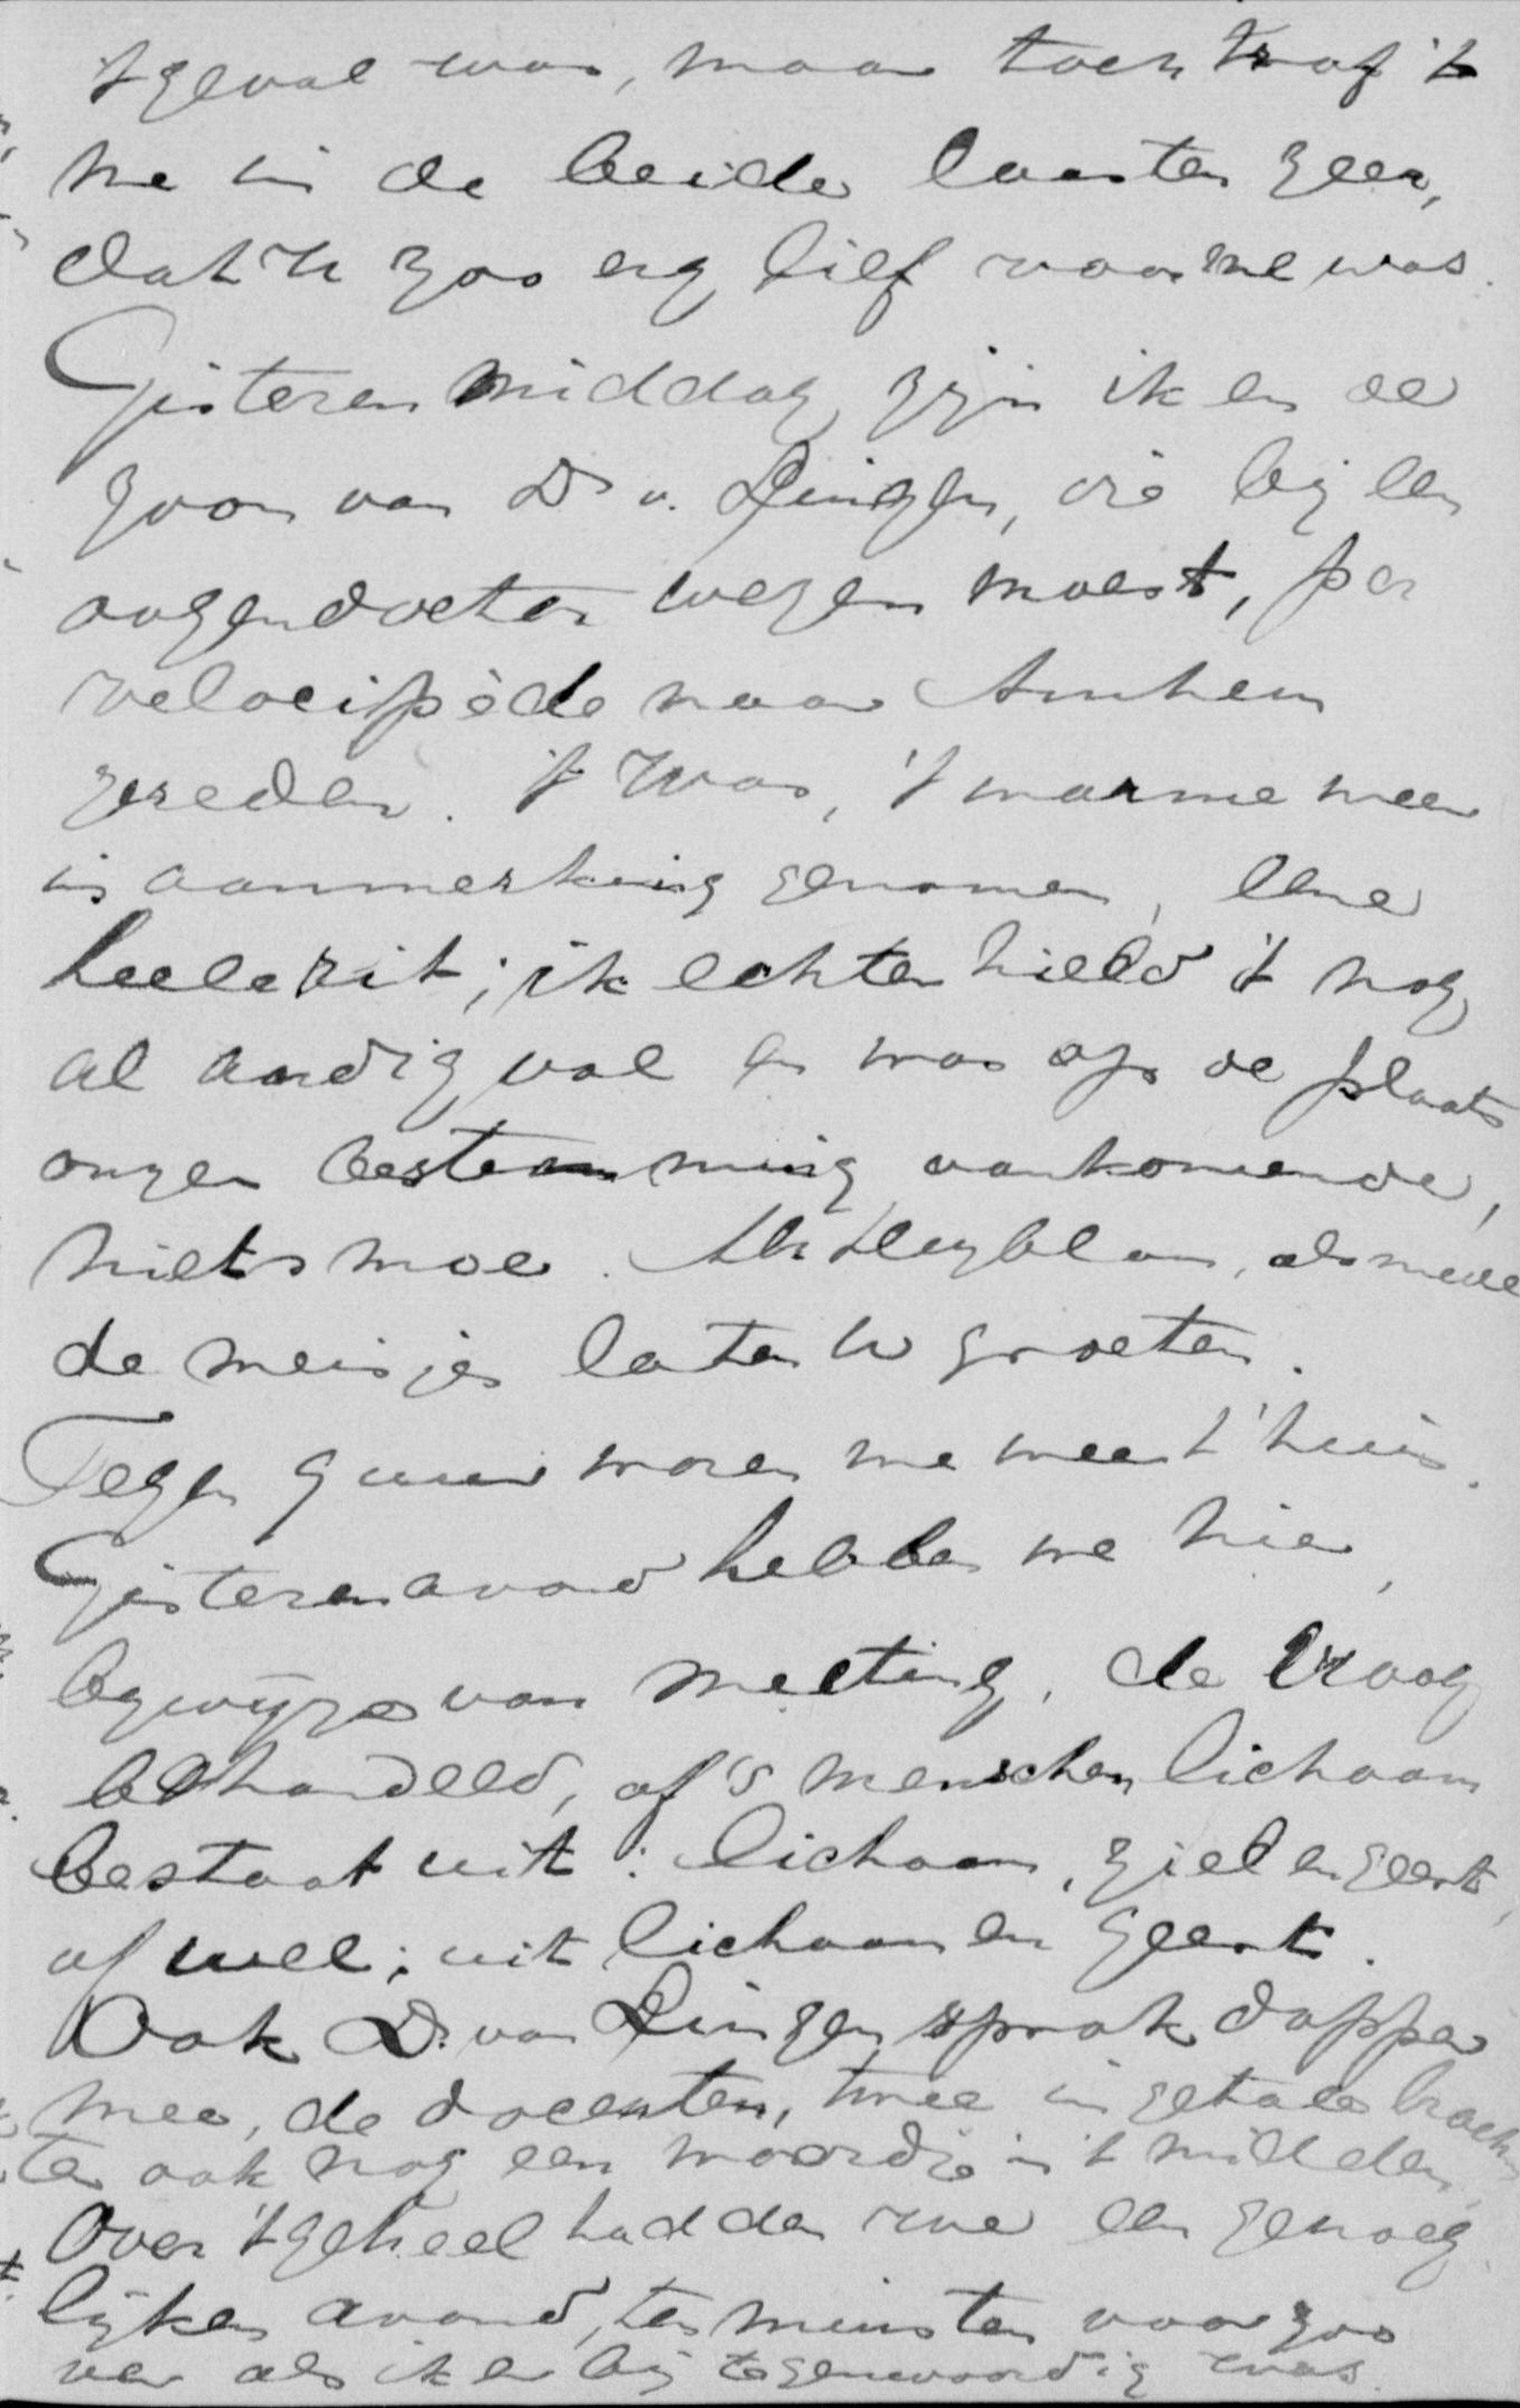 't geval was, maar toch trof 't
me in de beide laatsten zeer,
dat U zoo erg lief voor me was.
Gisteren middag zijn ik en de
zoon van Dr v. Lingen, die bij een
oogendocter wezen moest, per
velocipède naar Arnhem
gereden. 't Was, 't warme weer
in aanmerking genomen, eene
heele rit; ik echter hield 't nog
al aardig vol en was op de plaats
onzer bestemming aankomende,
niets moe. Mr Heyblom, alsmede
de meisjes laten U groeten.
Tegen 9 uur waren we weer t'huis.
Gisterenavond hebben we hier,
bij wijze van meeting, de vraag
behandeld, of 's menschen lichaam
bestaat uit: lichaam, ziel en geest,
of wel; uit lichaam en geest.
Ook Dr. van Lingen sprak dapper
mee, de docenten, twee in getale brach
ten ook nog een woordje in 't midden.
Over 't geheel hadden we een genoeg
lijken avond, ten minsten voor zoo
ver als ik er bij tegenwoordig was.